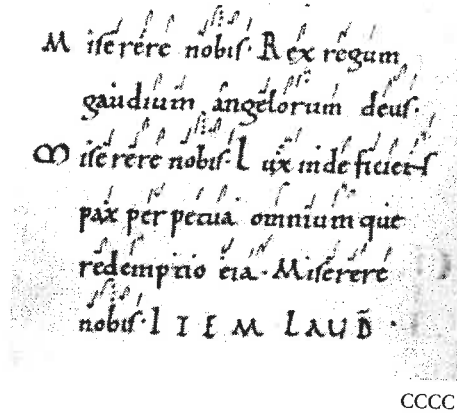 Miserere nobis. Rex regum
gaudium angelorum deus.
Miserere nobis. Lux indeficiens
pax perpetua omniumque
redemptio eia. Miserere
nobis. ITEM LAUD̄.
CCCC